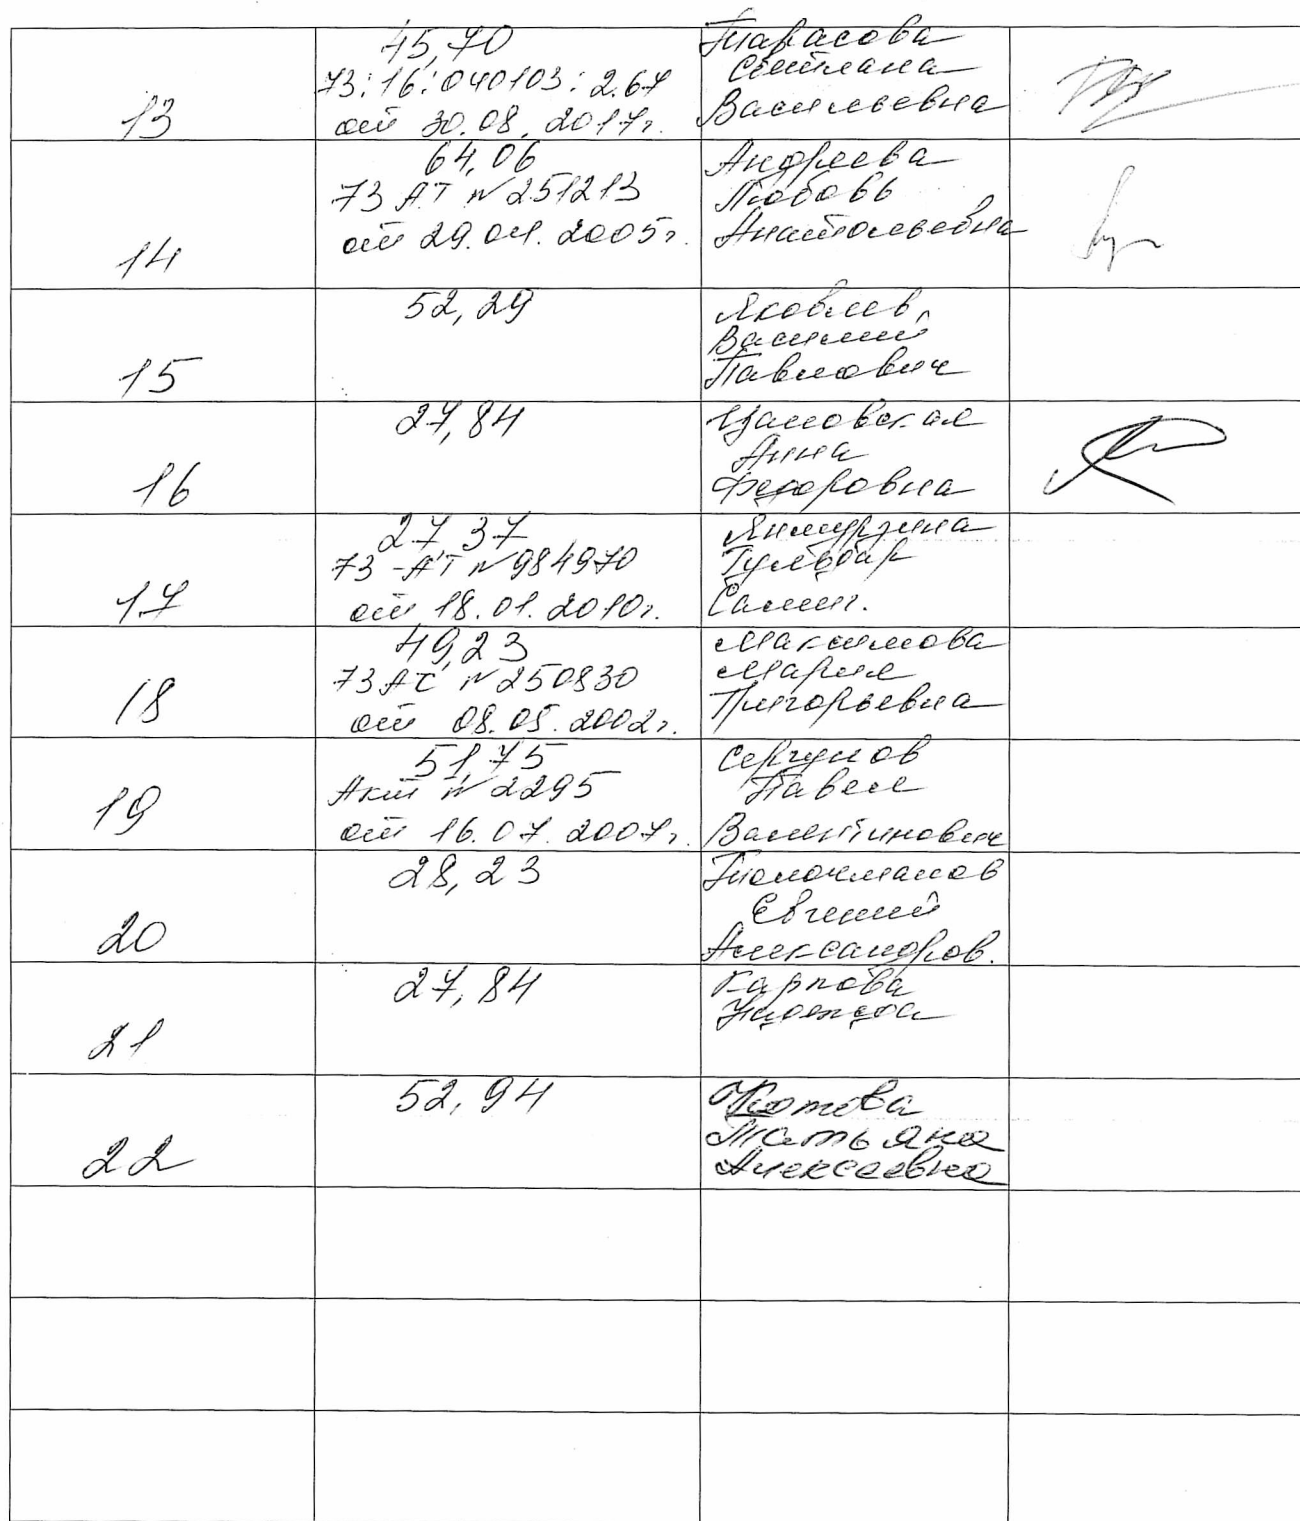 45,70
73:16:040103:267
от 30.08.2017г.
13
Тарасова
Светлана
Васильевна
64,06
73 АТ №251213
от 29.04.2005г.
14
Андреева
Любовь
Анатольевна
52,29
15
Яковлев
Василий
Павлович
27,84
16
Анна
Федоровна
27,37
73-АТ №984970
от 18.01.2010г.
17
Гульбар
49,23
73 АТ №250830
от 08.05.2002г.
18
Максимова
Мария
Григорьевна
51,75
Акт №2295
от 16.07.2007г.
19
Сергунов
Павел
Валентинович
28,23
20
Евгений
Александров.
27,84
21
Карпова
Надежда
52,94
22
Котова
Татьяна
Алексеевна